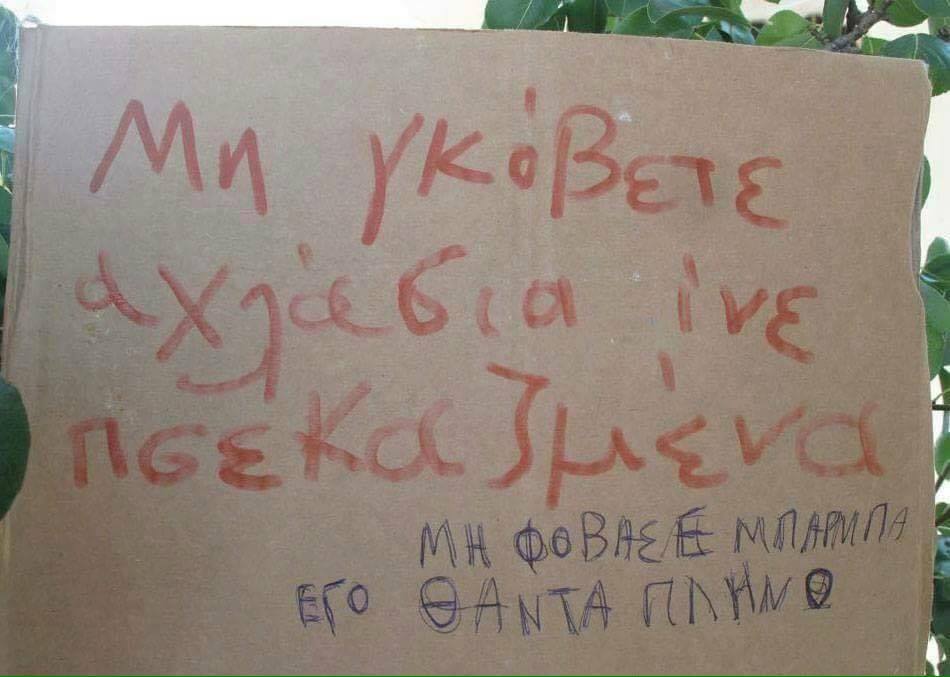 Μη γκόβετε
αχλάδια ίνε
πσεκαζμένα
ΜΗ ΦΟΒΑΣΕ ΜΠΑΡΜΠΑ
ΕΓΟ ΘΑ ΝΤΑ ΠΛΗΝΟ